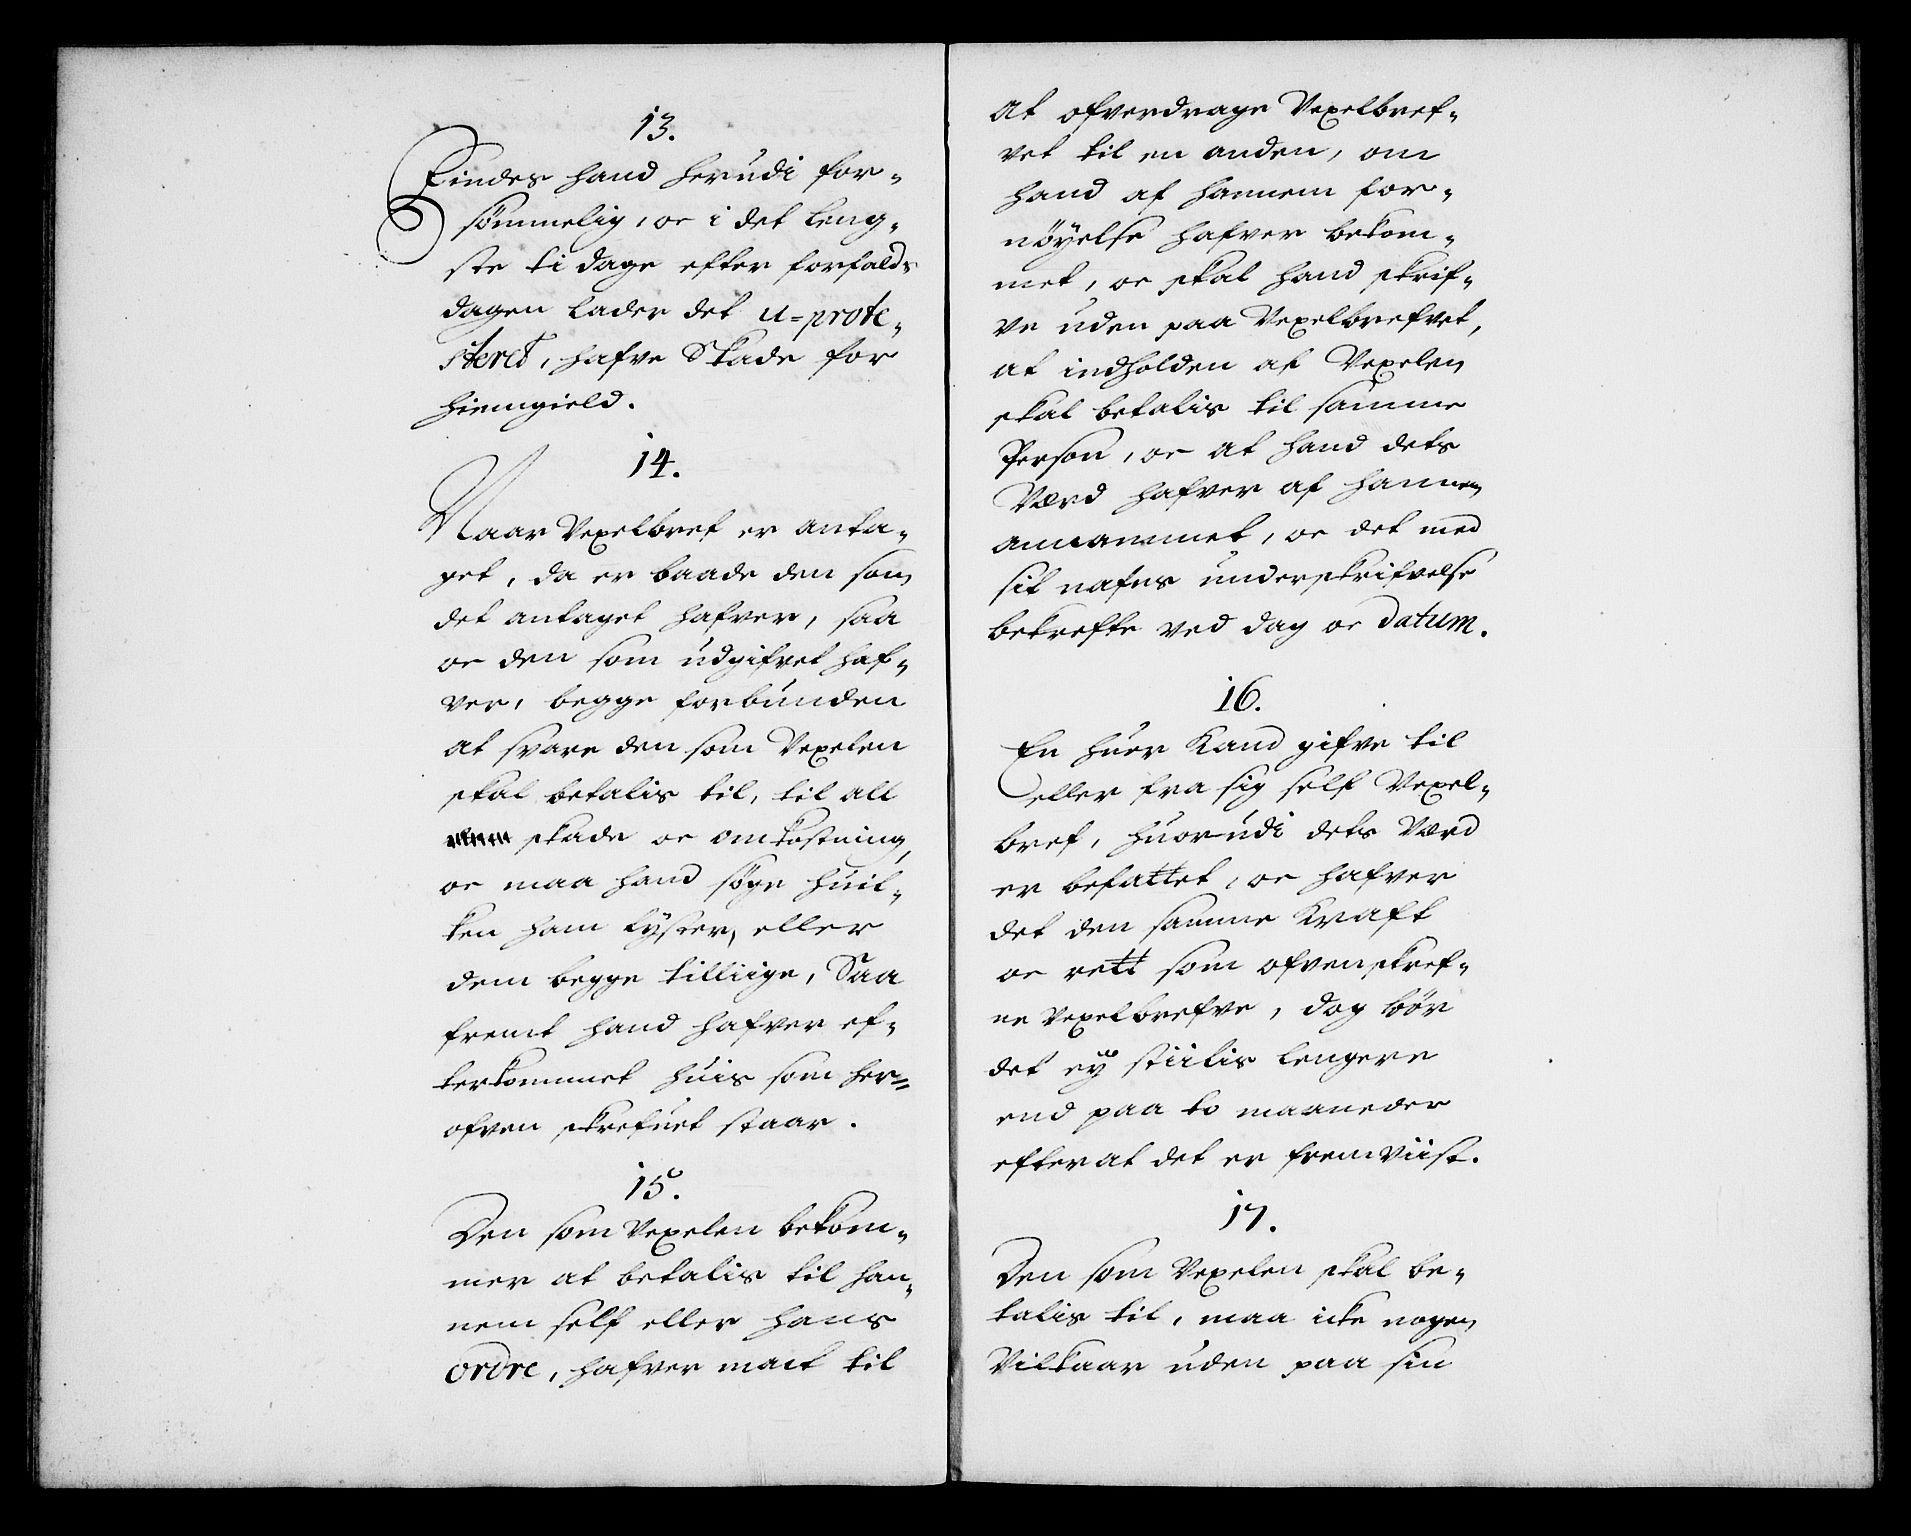 13.
Findes hand herudi for-
sømmelig, oc i det leng-
ste ti dage efter forfalds
dagen lader det u-prote-
steret, hafve Skade for
hiemgield.
14.
Naar Vexelbref er anta-
get, da er baade den som
det antaget hafver, saa
oc den som udgifvet haf-
ver, begge forbunden
at svare den som Vexelen
skal betalis til, til all
skade oc omkostning,
oc maa hand søge huil-
ken ham lyster, eller
dem begge tilliige, Saa
fremt hand hafver ef-
terkommet huis som her-
ofven skrefuet staar.
15.
Den som Vexelen bekom-
mer at betalis til han-
nem self eller hans
ordre, hafver mact til
at ofverdrage Vexelbref-
vet til en anden, om
hand af hannem for-
nøyelse hafver bekom-
met, oc skal hand skrif-
ve uden paa Vexelbrefvet,
at indholden af Vexelen
skal betalis til samme
Person, oc at hand dets
Værd hafver af hannem
annammet, oc det med
sit nafns underskrifvelse
bekrefte ved dag oc datum.
16.
En huer kand gifve til
eller fra sig self Vexel-
bref, huor-udi dets Værd
er befattet, oc hafver
det den samme Kraft
oc rett som ofvenskref-
ne Vexelbrefve, dog bør
det ey stiilis lengere
end paa to maaneder
efter at det er fremviist.
17.
Den som Vexelen skal be-
talis til, maa icke nogen
Vilkaar uden paa sin